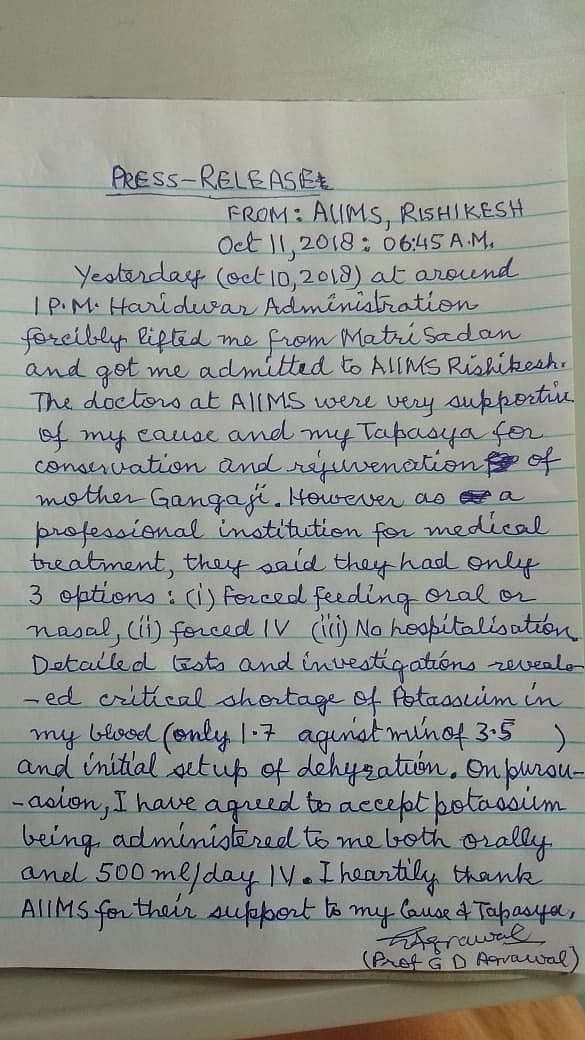 PRESS-RELEASE
FROM: AIIMS, RISHIKESH
Oct 11, 2018: 06:45 A.M.
Yesterday (Oct 10, 2018) at around
1 P.M. Haridwar Administration
forcibly lifted me from Matri Sadan
and got me admitted to AIIMS Rishikesh.
The doctors at AIIMS were very supportive
of my cause and my Tapasya for
conservation and rejuvenation of
mother Gangaji. However as a
professional institution for medical
treatment, they said they had only
3 options: (i) Forced feeding oral or
nasal, (ii) forced IV (iii) No hospitalisation.
Detailed tests and investigations reveale-
-ed critical shortage of Potassuim in
my blood (only 1.7 aginst min of 3.5 )
and initial setup of dehyration. On pursu-
-asion, I have agreed to accept potassium
being administered to me both orally
and 500 ml/day IV. I heartily thank
AIIMS for their support to my Cause & Tapasya,
Agrawal
(Prof G D Agrawal)